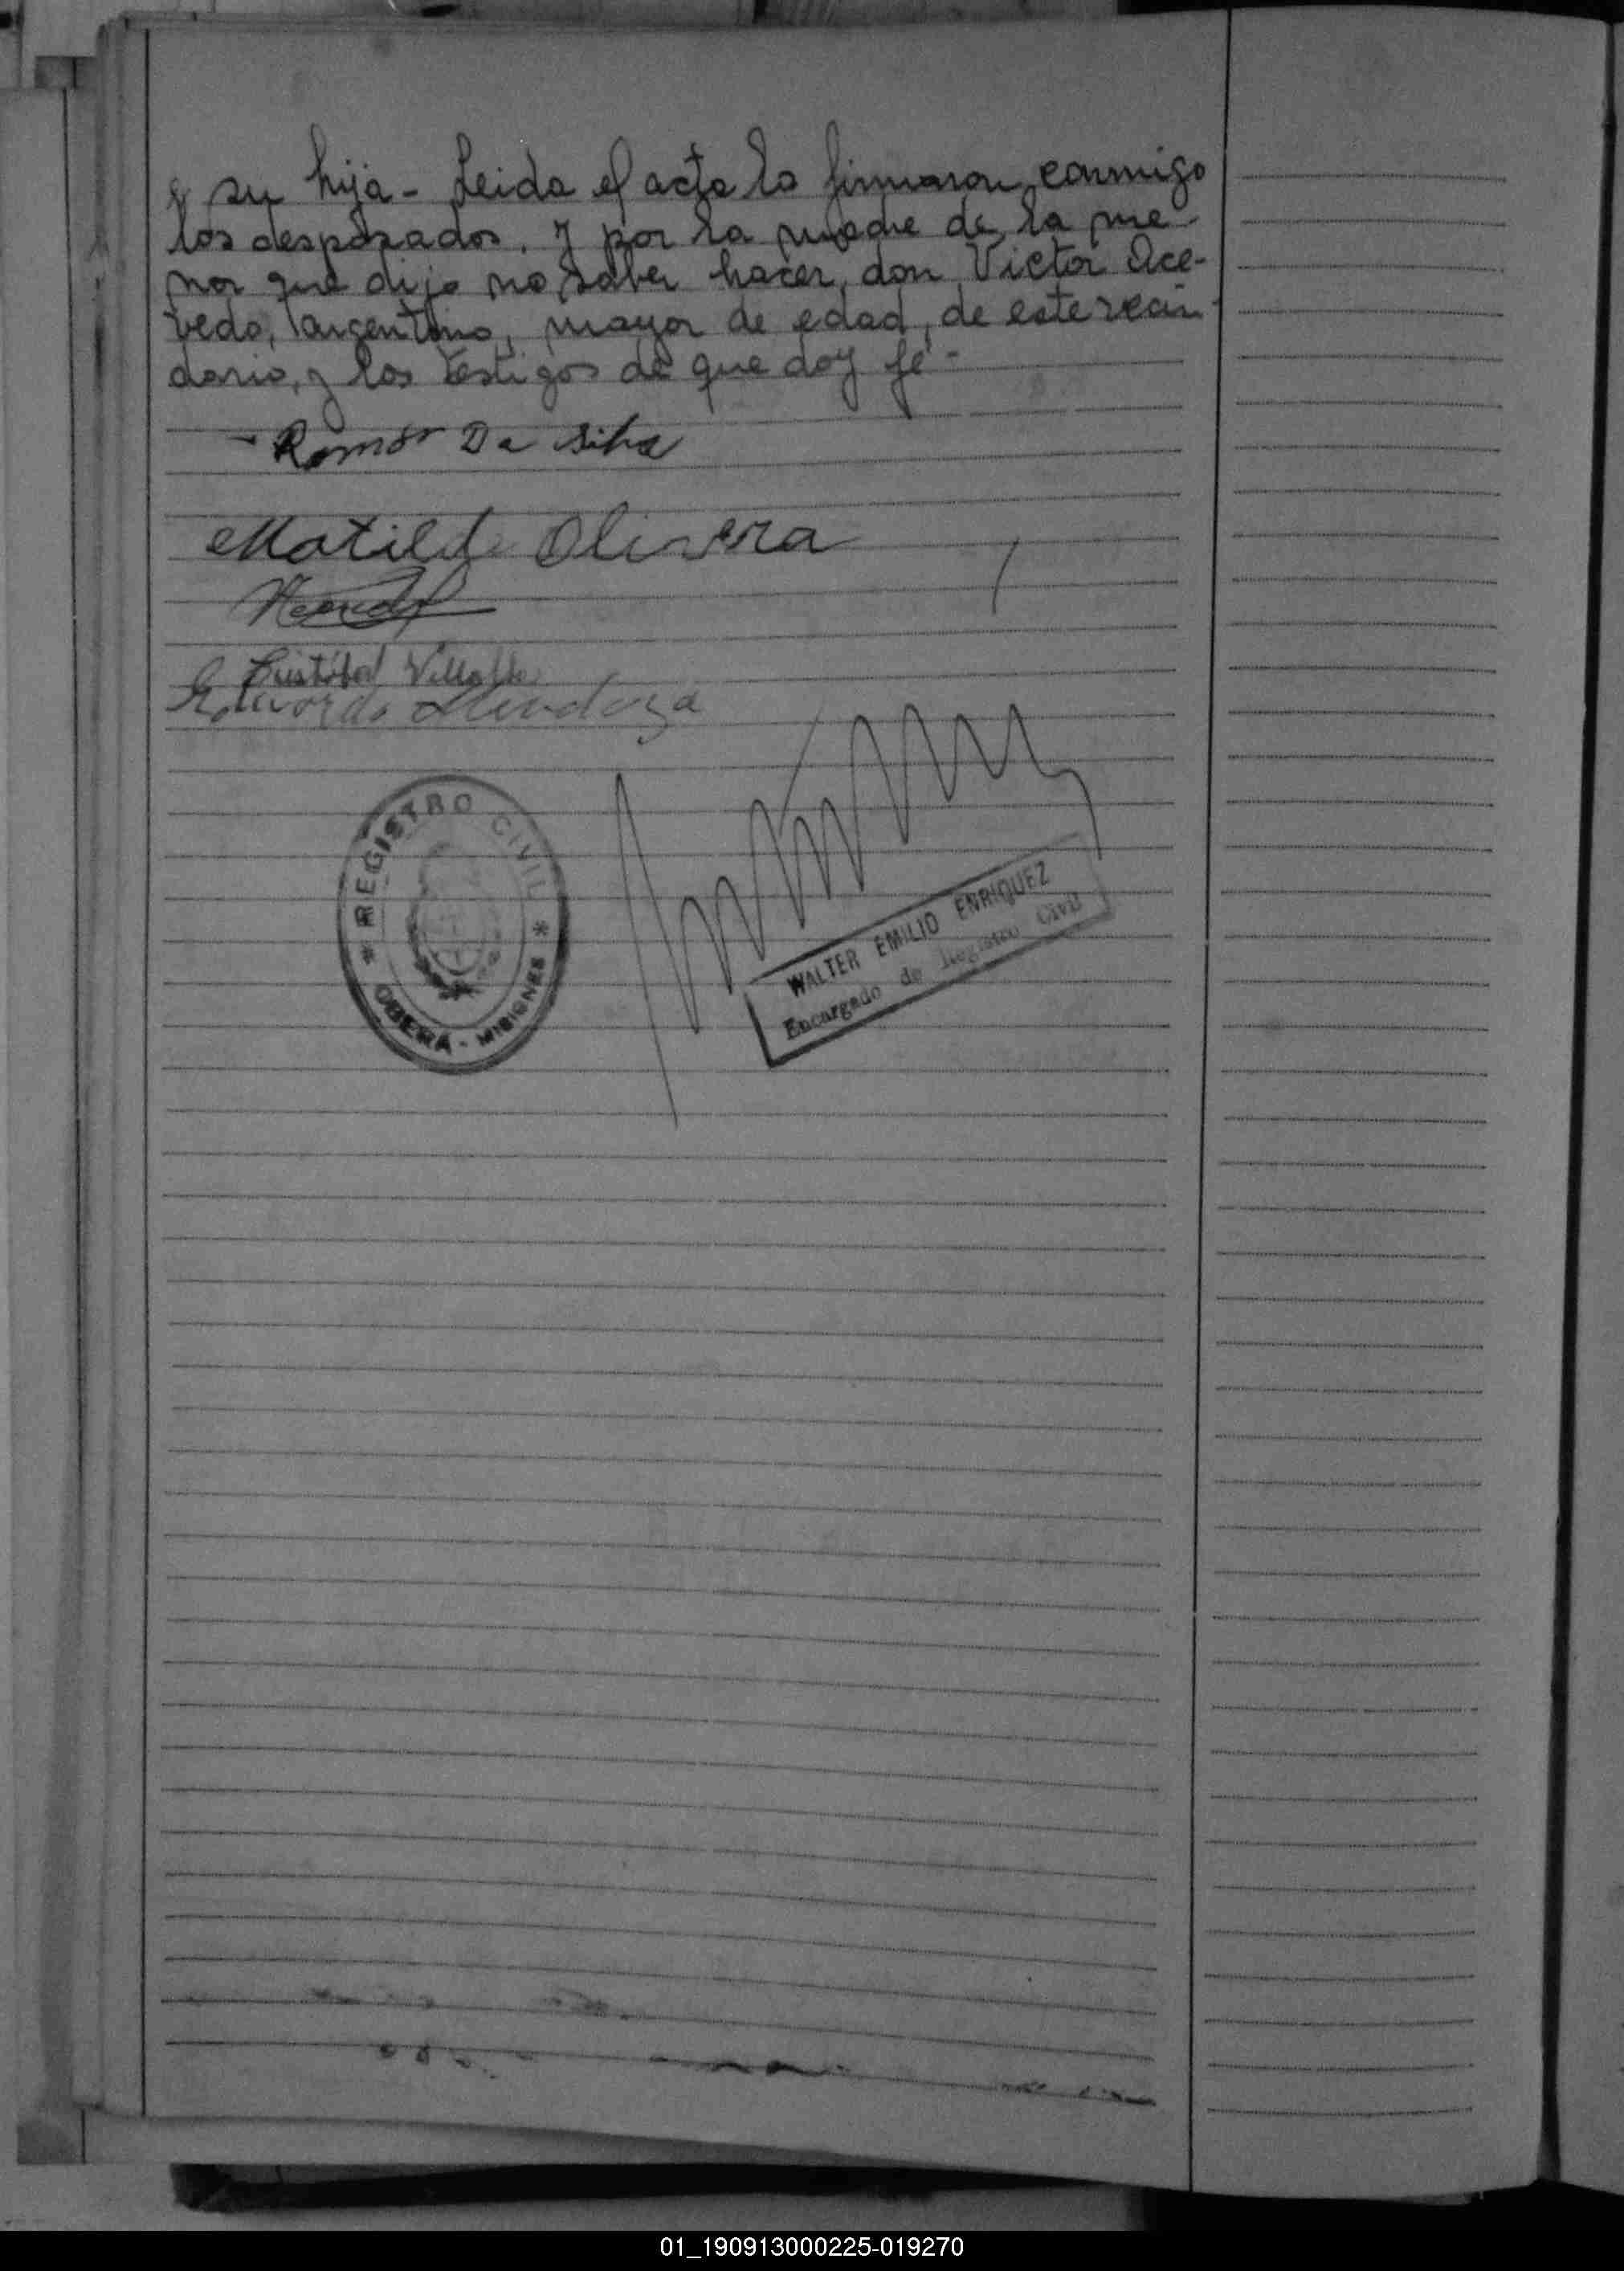 a su hija - Leida el acta la firmaron conmigo
los desposados. Y por la madre de la me-
nor que dijo no saber hacer, don Victor Ace-
vedo, argentino, mayor de edad, de este vecin-
dario, y los testigos de que doy fé -
Ramón Da Silva
Matilde Olivera
Cristóbal Villalba
Eduardo Mendoza
* REGISTRO CIVIL *
OBERA - MISIONES
WALTER EMILIO ENRIQUEZ
Encargado de Registro Civil
01_190913000225-019270